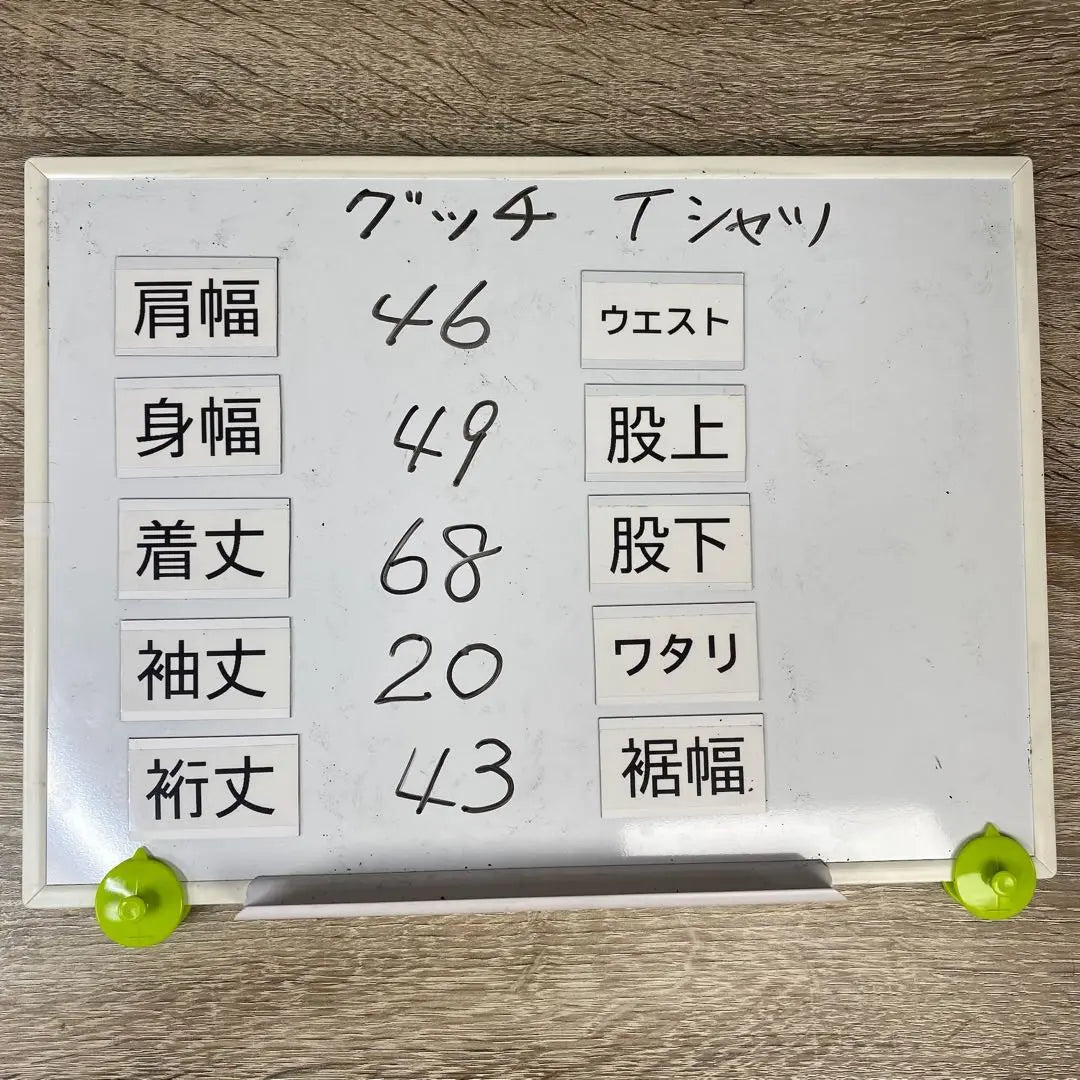 グッチ Tシャツ
肩幅 46 ウエスト
身幅 49 股上
着丈 68 股下
袖丈 20 ワタリ
裄丈 43 裾幅